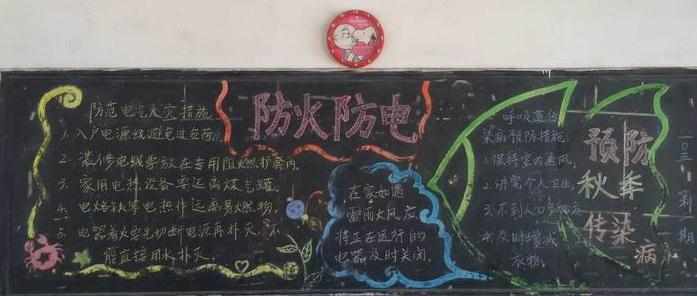 防范电气火灾措施
1. 入户电源线避免过负荷
2. 装修电线要放在专用阻燃护套内.
3. 家用电热设备要远离煤气罐.
4. 电烙铁等电热件远离易燃物.
5. 电器着火要先切断电源再扑灭, 不
能直接用水扑灭.
防火防电
在家如遇
雷雨大风应
将正在运行的
电器及时关闭.
呼吸道传
染病预防措施
1. 保持室内通风.
2. 讲究个人卫生.
3. 不到人口
4. 及时增减
衣物.
预防
秋季
传染
病
一〇三